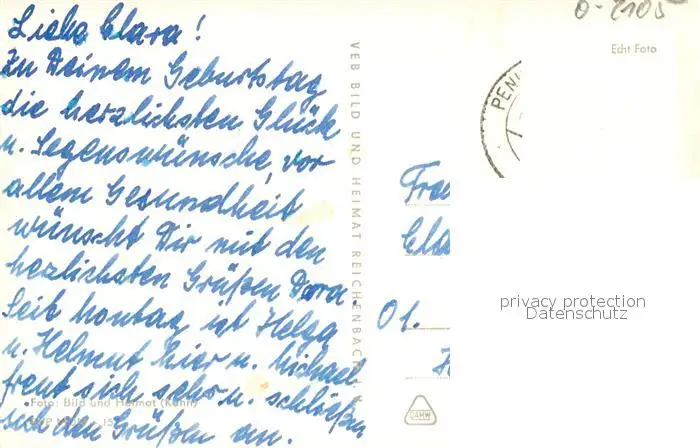 Liebe Clara!
Zu Deinem Geburtstag
die herzlichsten Glück
u. Segenswünsche, vor
allem Gesundheit
wünscht Dir mit den
herzlichsten Grüßen Dora.
Seit Montag ist Helga
u. Helmut hier u. Michael
freut sich sehr u. schließen
sich den Grüßen an.
Foto: Bild und Heimat (Kühn)
VEB BILD UND HEIMAT REICHENBACH I. V.
0-2105
Echt Foto
PENI
Frau
Cla
01.
privacy protection
Datenschutz
DAHW